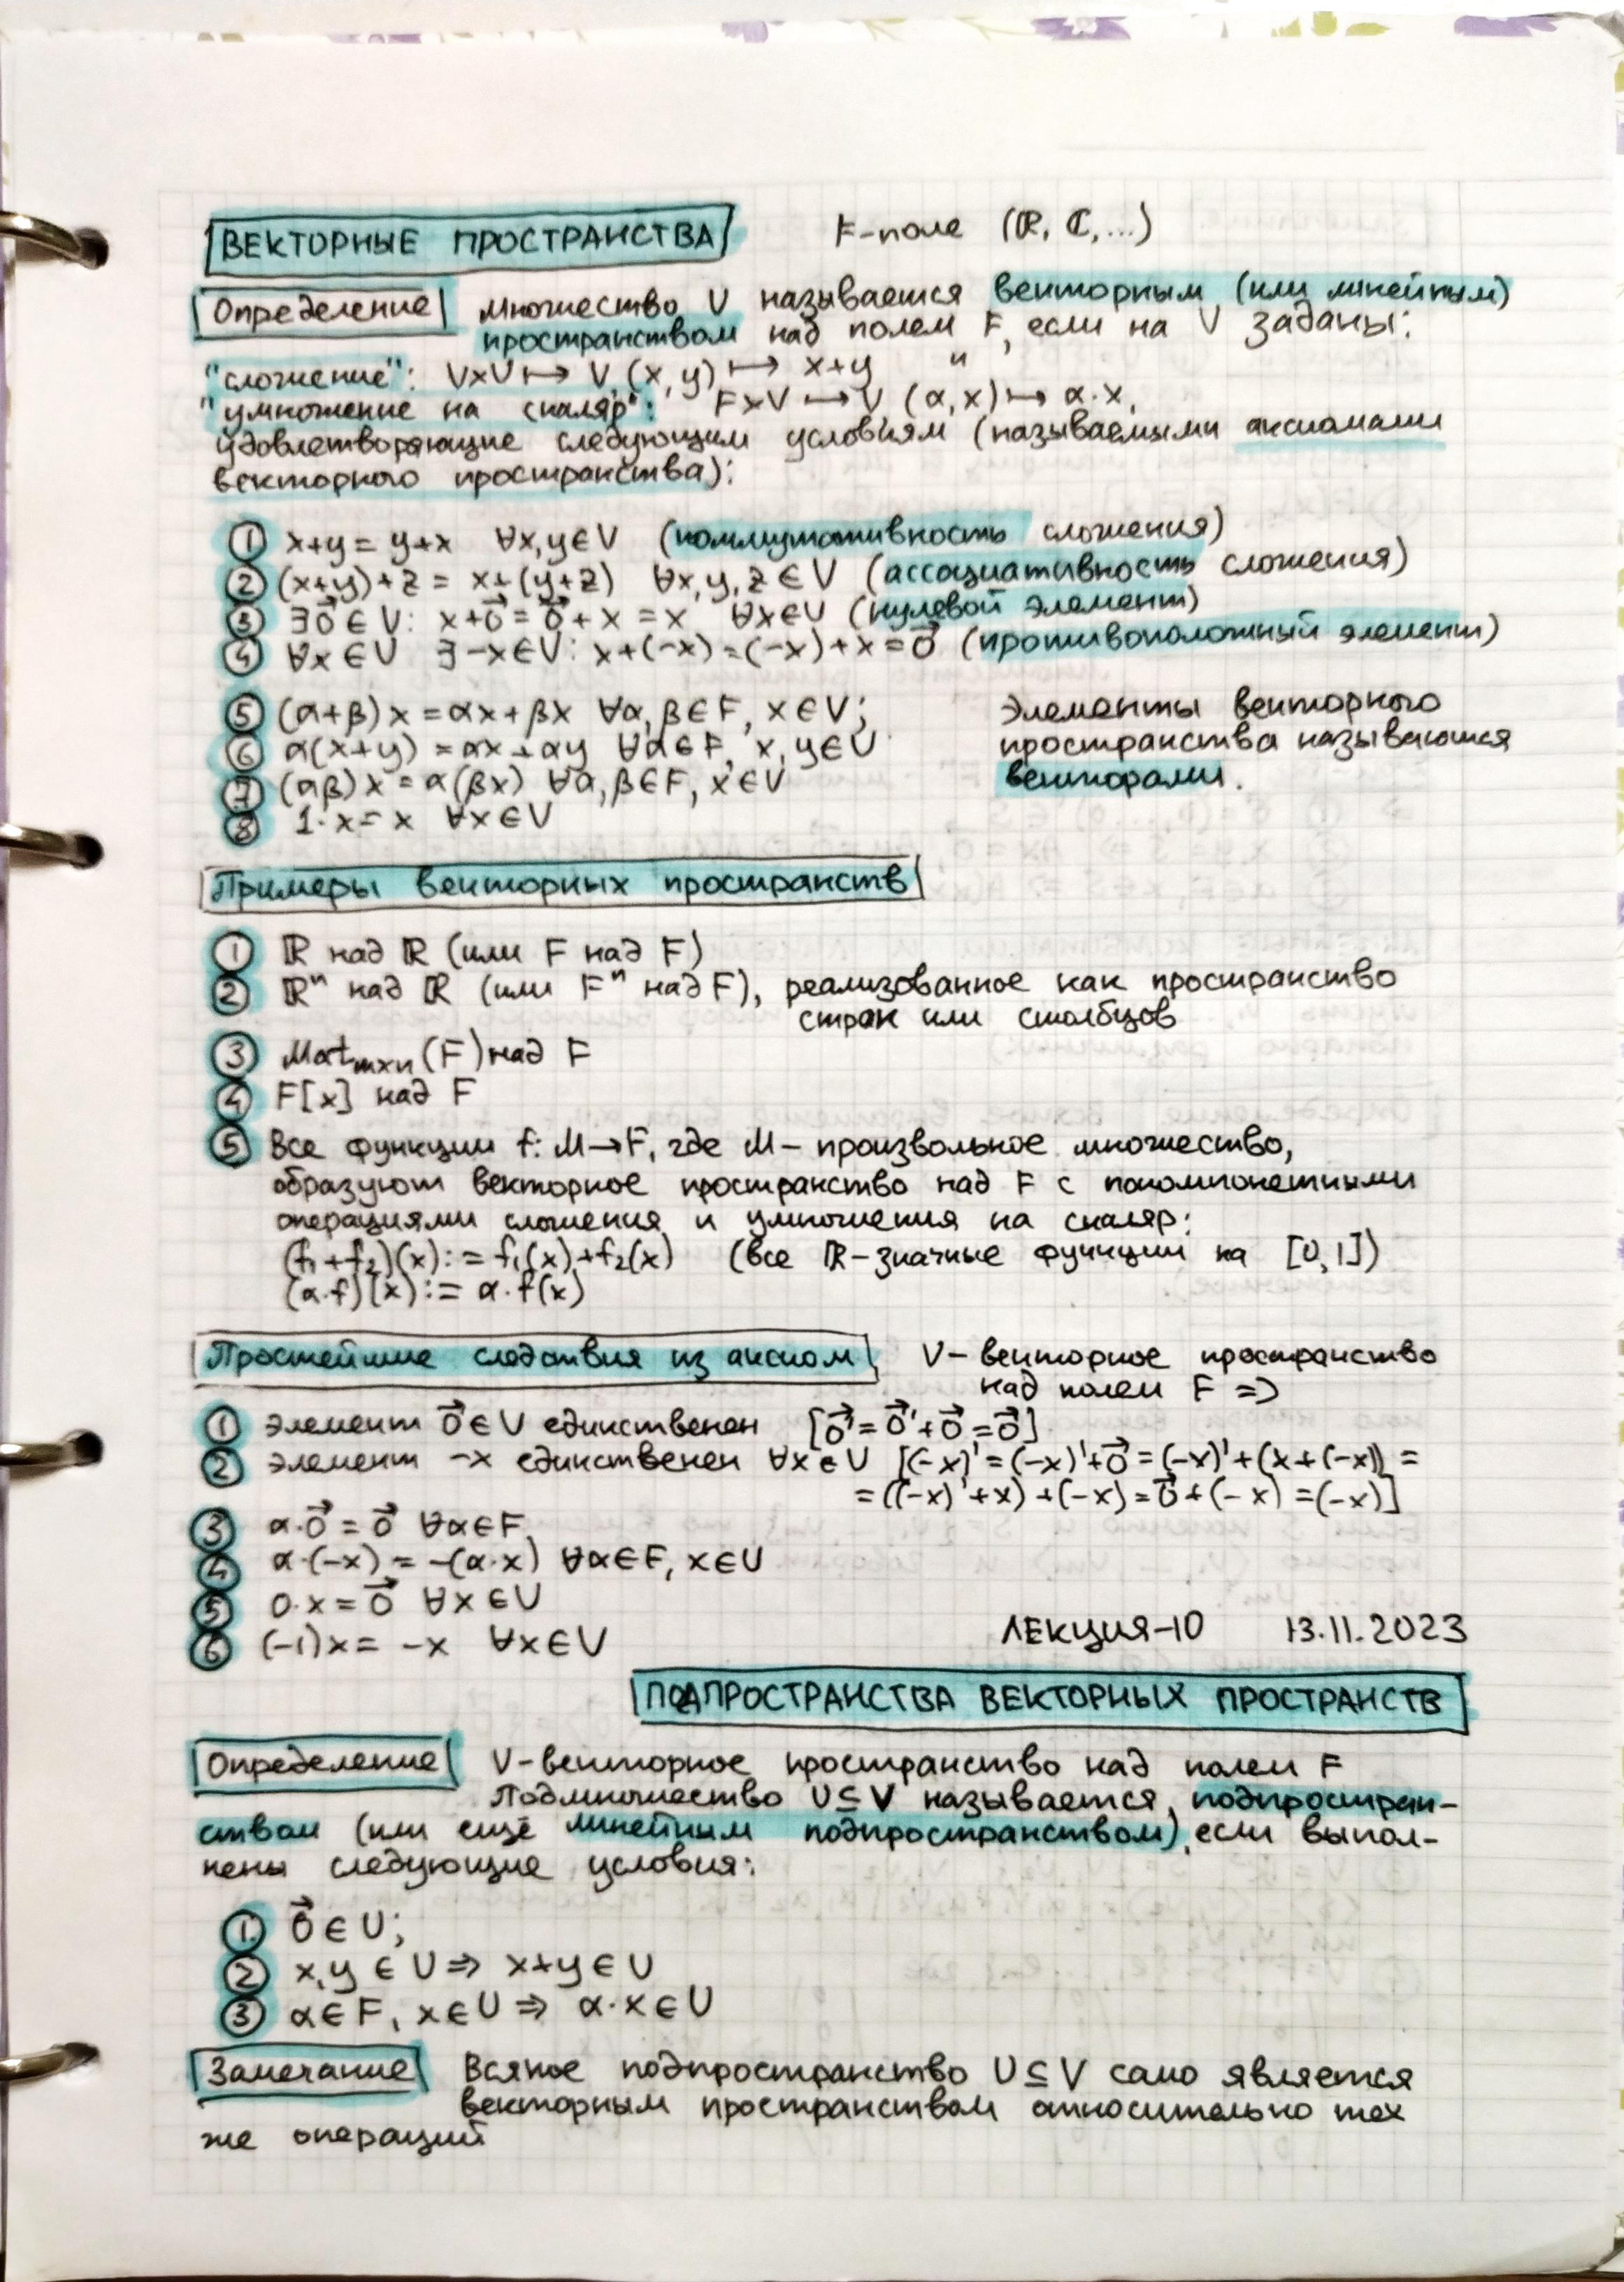 ВЕКТОРНЫЕ ПРОСТРАНСТВА F-поле (ℝ, ℂ,...)
Определение Множество V называется векторным (или линейным)
пространством над полем F, если на V заданы:
"сложение": V×V ↦ V, (x,y) ↦ x+y и
"умножение на скаляр": F×V ↦ V, (α,x) ↦ α·x,
удовлетворяющие следующим условиям (называемыми аксиомами
векторного пространства):
① x+y = y+x ∀x,y∈V (коммутативность сложения)
② (x+y)+z = x+(y+z) ∀x,y,z∈V (ассоциативность сложения)
③ ∃0⃗∈V: x+0⃗=0⃗+x=x ∀x∈V (нулевой элемент)
④ ∀x∈V ∃-x∈V: x+(-x)=(-x)+x=0⃗ (противоположный элемент)
⑤ (α+β)x=αx+βx ∀α,β∈F, x∈V;
⑥ α(x+y)=αx+αy ∀α∈F, x,y∈V
⑦ (αβ)x=α(βx) ∀α,β∈F, x∈V
⑧ 1·x=x ∀x∈V
Элементы векторного
пространства называются
векторами.
Примеры векторных пространств
① ℝ над ℝ (или F над F)
② ℝⁿ над ℝ (или Fⁿ над F), реализованное как пространство
строк или столбцов
③ Matₘₓₙ(F) над F
④ F[x] над F
⑤ Все функции f: M→F, где M- произвольное множество,
образуют векторное пространство над F с покомпонетными
операциями сложения и умножения на скаляр:
(f₁+f₂)(x):=f₁(x)+f₂(x) (все ℝ-значные функции на [0,1])
(α·f)(x):= α·f(x)
Простейшие следствия из аксиом V- векторное пространство
над полем F =>
① элемент 0⃗∈V единственен [0⃗'=0⃗'+0⃗=0⃗]
② элемент -x единственен ∀x∈V [(-x)'=(-x)'+0⃗=(-x)'+(x+(-x))=
=((-x)'+x)+(-x)=0⃗+(-x)=(-x)]
③ α·0⃗=0⃗ ∀α∈F,
④ α·(-x)=-(α·x) ∀α∈F, x∈V
⑤ 0·x=0⃗ ∀x∈V
⑥ (-1)x= -x ∀x∈V
ЛЕКЦИЯ-10 13.11.2023
ПОДПРОСТРАНСТВА ВЕКТОРНЫХ ПРОСТРАНСТВ
Определение V-векторное пространство над полем F
Подмножество U⊆V называется подпростран-
ством (или ещё линейным подпространством), если выпол-
нены следующие условия:
① 0⃗∈U;
② x,y∈U ⇒ x+y∈U
③ α∈F, x∈U ⇒ α·x∈U
Замечание Всякое подпространство U⊆V само является
векторным пространством относительно тех
же операций